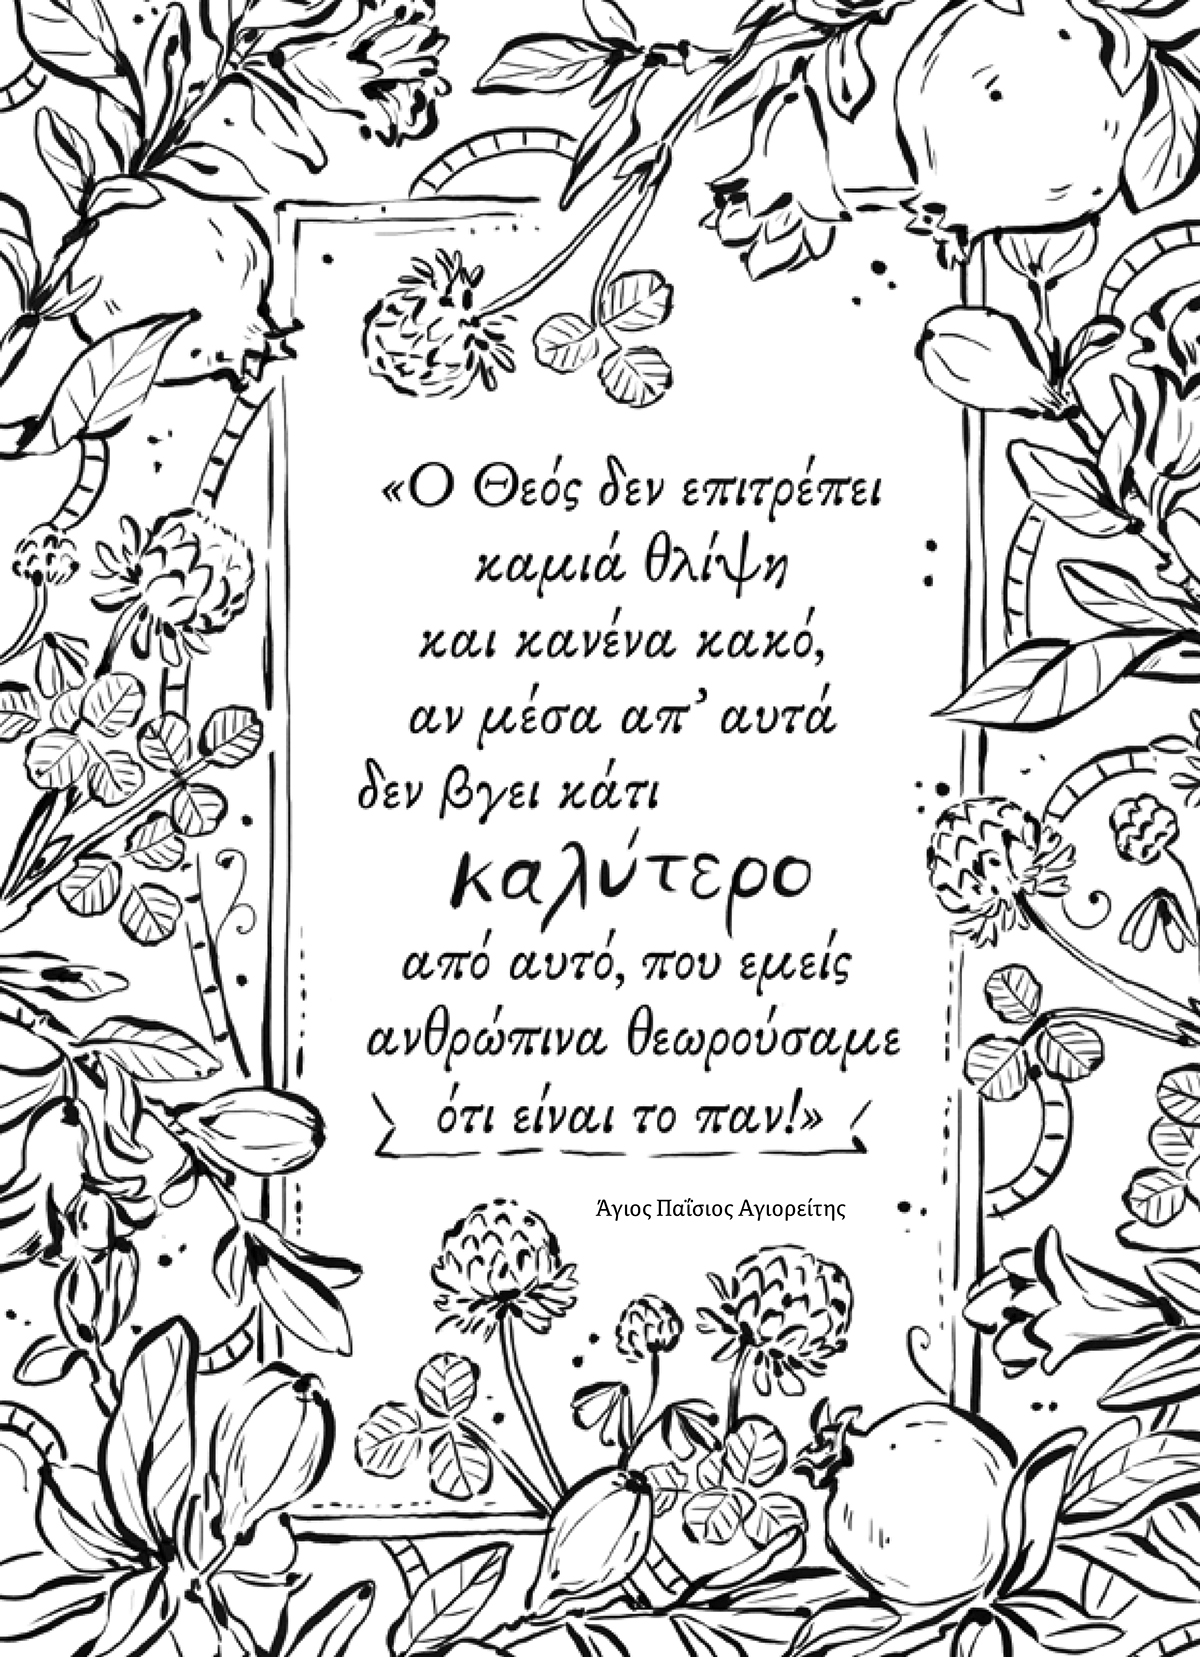 «Ο Θεός δεν επιτρέπει
καμιά θλίψη
και κανένα κακό,
αν μέσα απ’ αυτά
δεν βγει κάτι
καλύτερο
από αυτό, που εμείς
ανθρώπινα θεωρούσαμε
ότι είναι το παν!»
Άγιος Παΐσιος Αγιορείτης